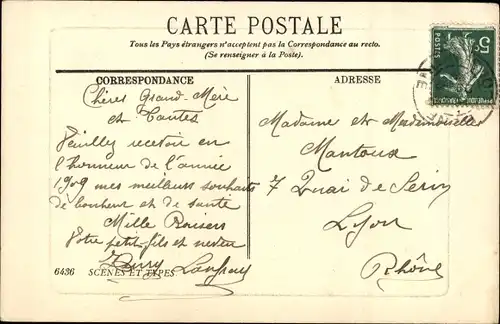 CARTE POSTALE
Tous les Pays étrangers n'acceptent pas la Correspondance au recto.
(Se renseigner à la Poste).
CORRESPONDANCE
Chères Grand-Mère
et Tantes
Veuillez recevoir en
l'honneur de l'année
1909 mes meilleurs souhaits
de bonheur et de santé
Mille Baisers
Votre petit-fils et neveu
6436 SCÈNES ET TYPES
ADRESSE
Madame et Mesdemoiselles
Mantoux
7 Quai de Serin
Lyon
Rhône
5c
POSTES